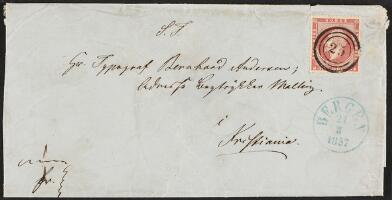 S. T.
Hr. Typograf Bernhard Andersen,
Adresse Bogtrykker Malling
i
Kristiania.
25
BERGEN
21
8
1857
fr.